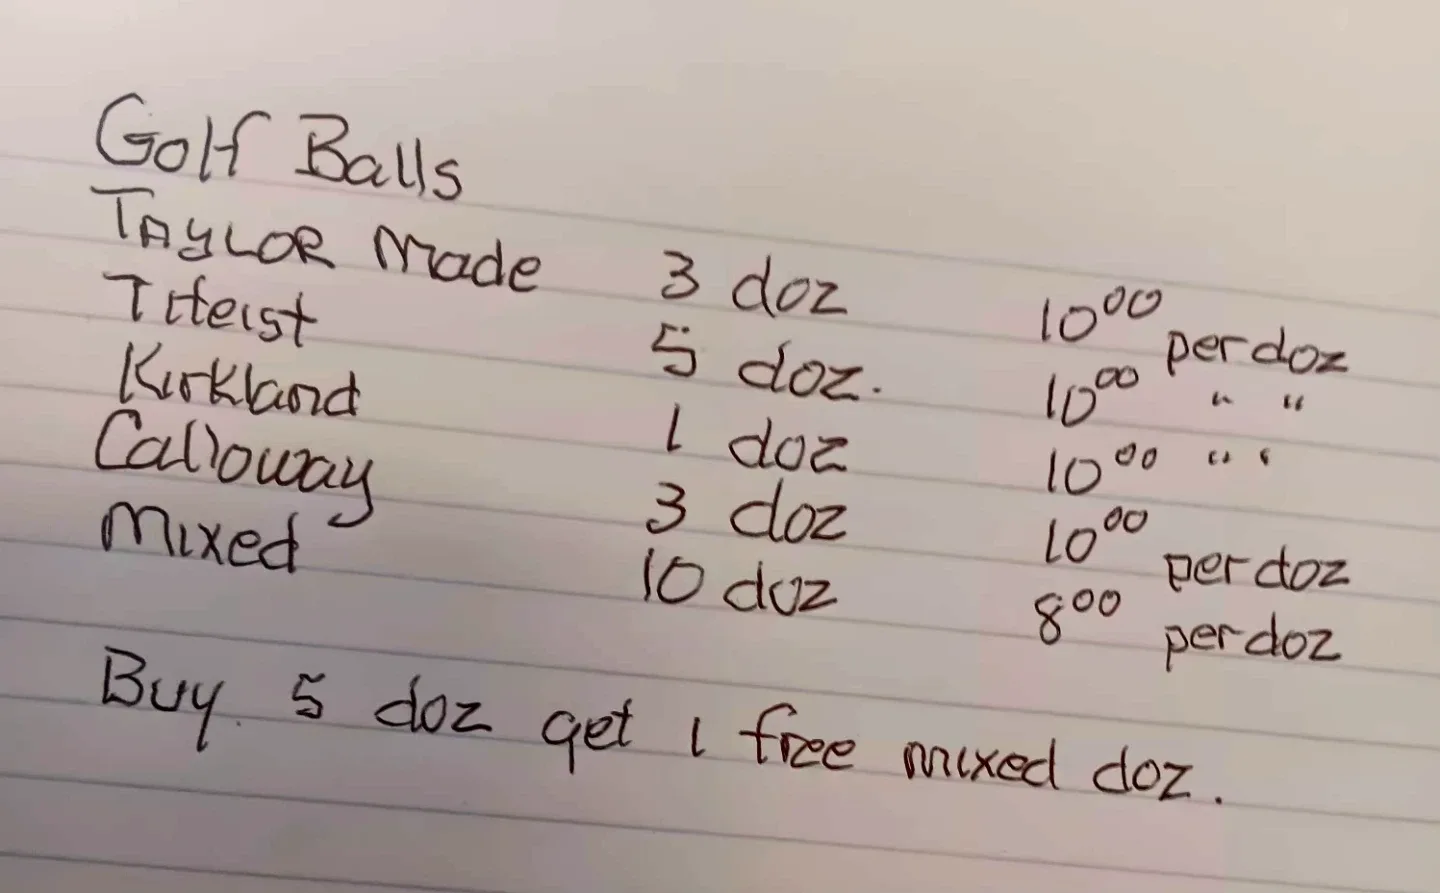 Golf Balls
TAYLOR Made 3 doz 10⁰⁰ per doz
Titeist 5 doz. 10⁰⁰ " "
Kirkland 1 doz 10⁰⁰ " "
Calloway 3 doz 10⁰⁰ per doz
Mixed 10 doz 8⁰⁰ per doz
Buy 5 doz get 1 free mixed doz.